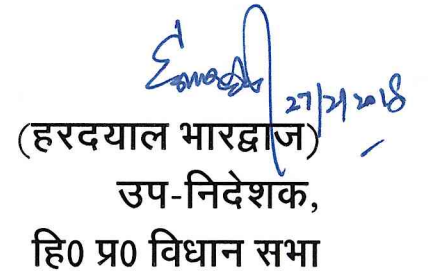 27/2/2018
(हरदयाल भारद्वाज)
उप-निदेशक,
हि0 प्र0 विधान सभा